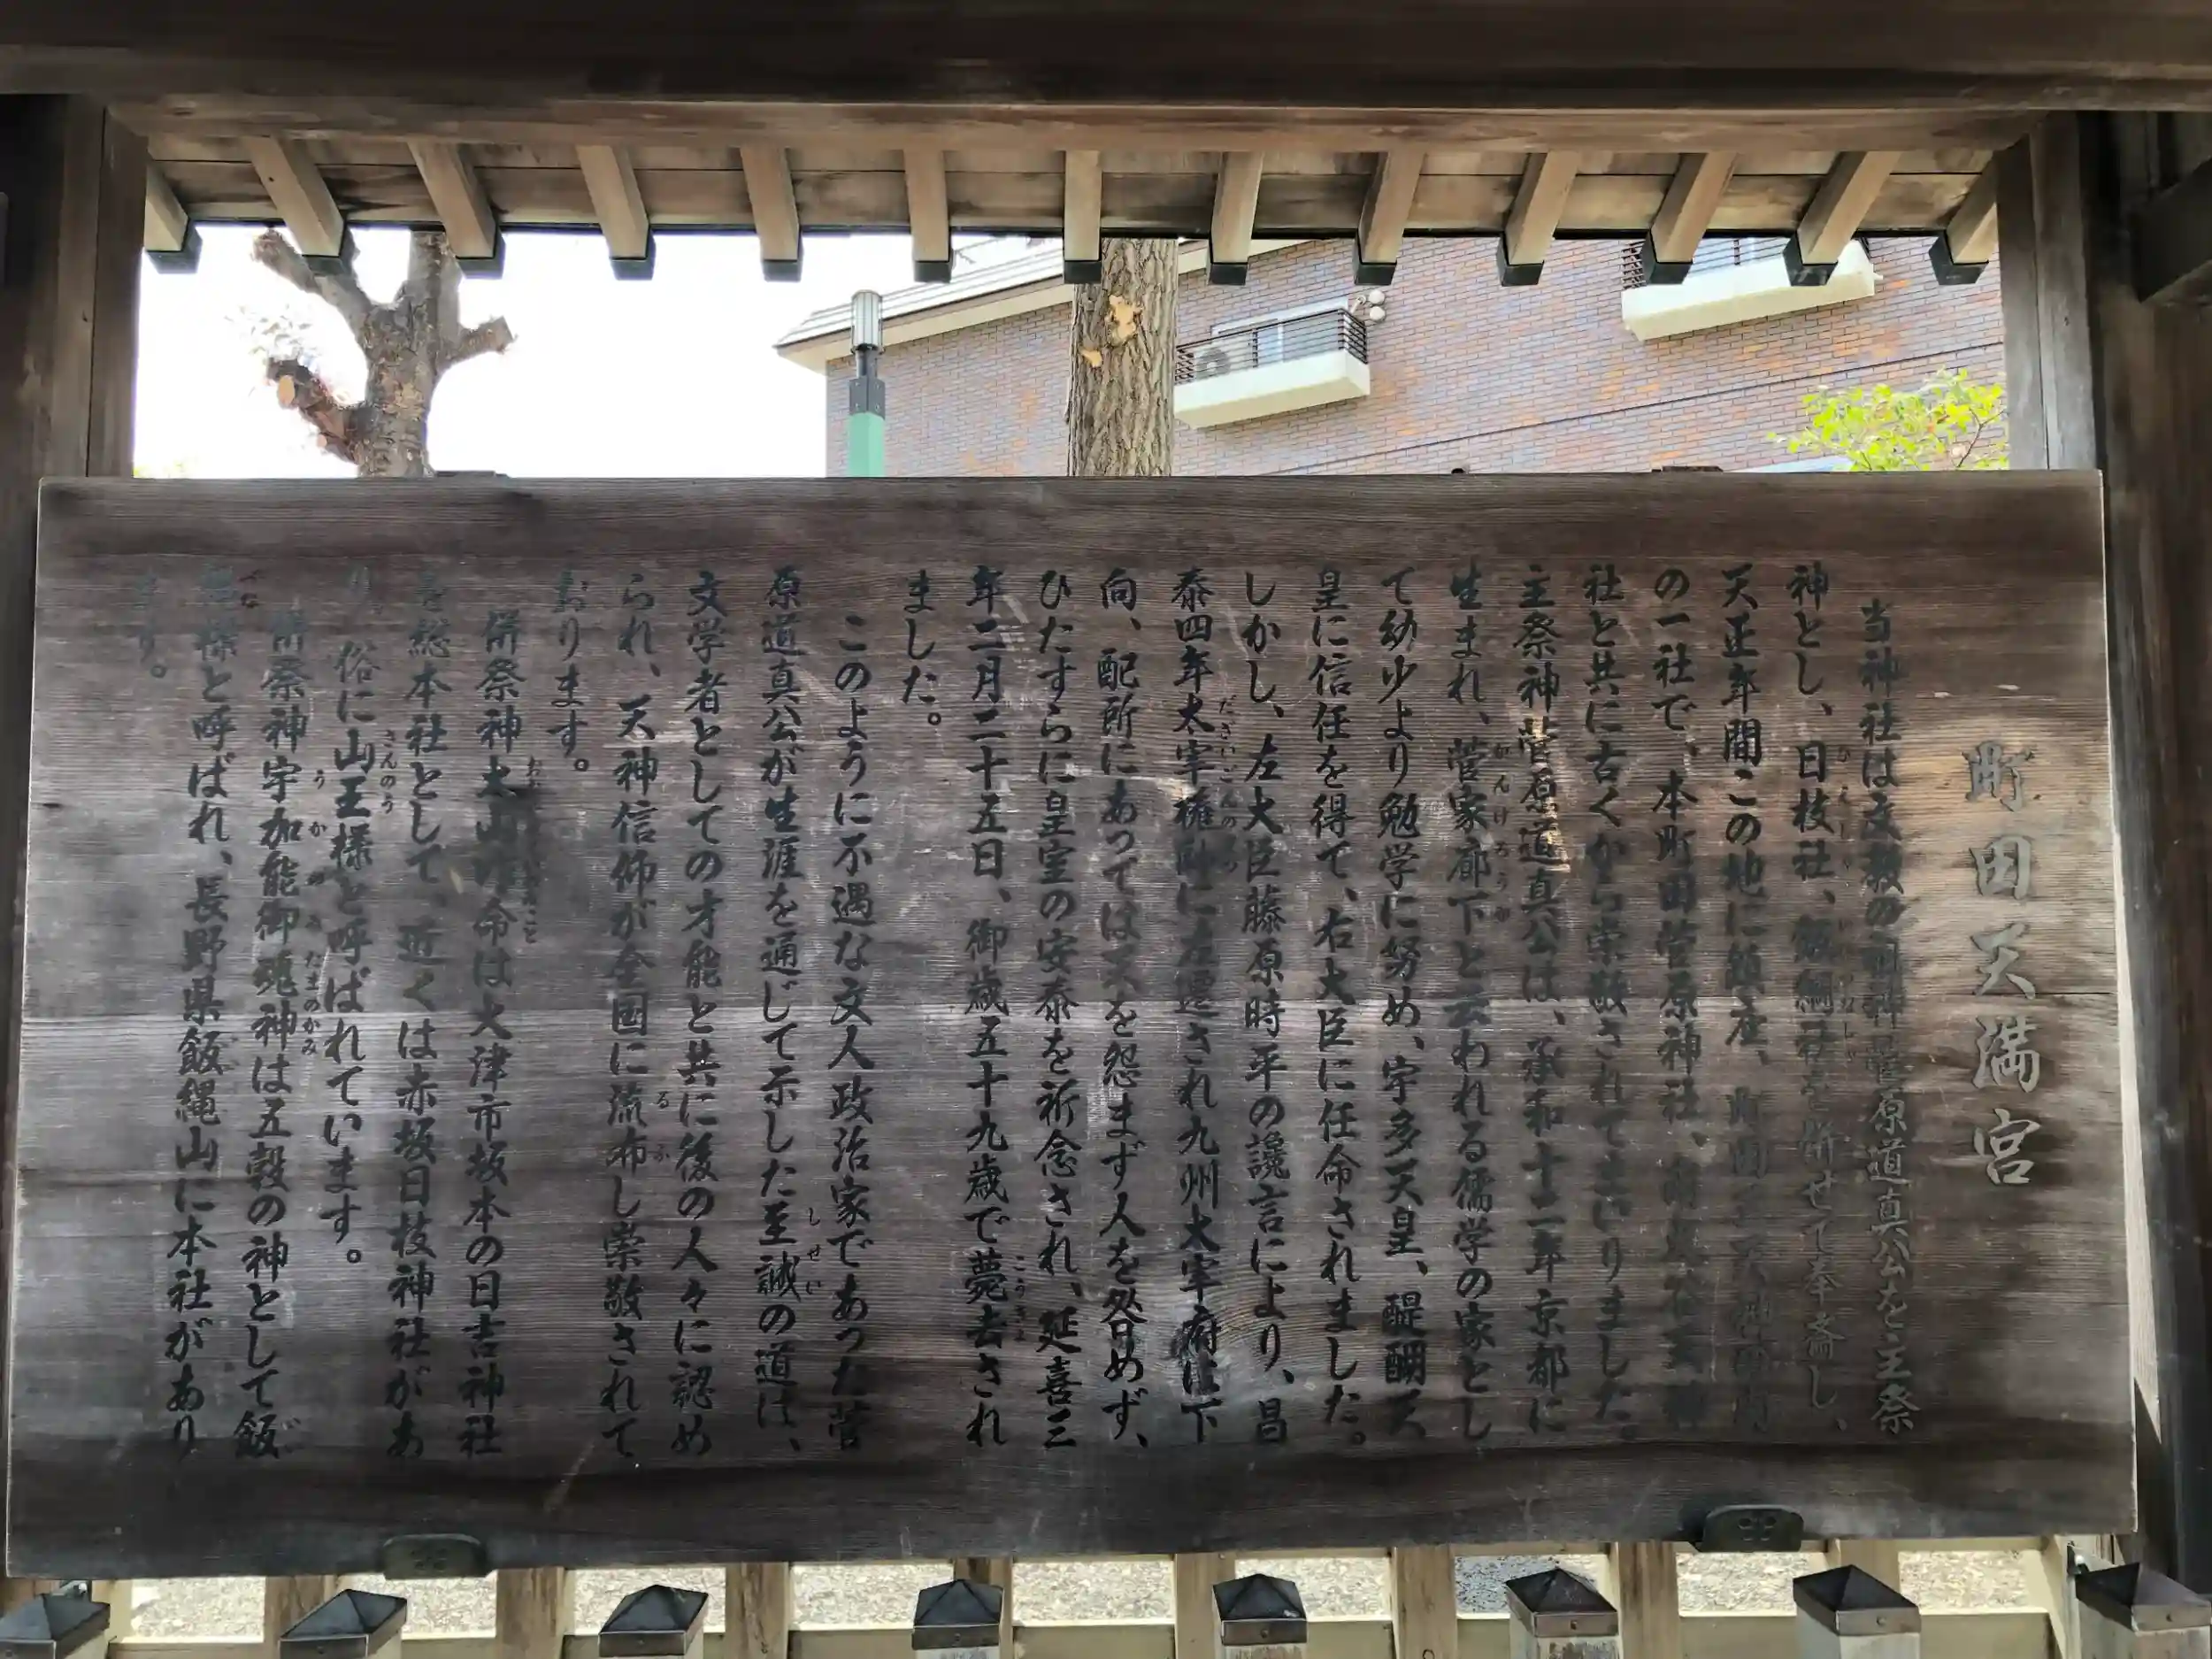 町田天満宮
当神社は文教の祖神菅原道真公を主祭
神とし、日枝社、飯綱社を併せて奉斎し、
天正年間この地に鎮座、町田三天神
の一社で、本町田菅原神社、
社と共に古くから崇敬されてまいりました。
主祭神菅原道真公は、承和十二年京都に
生まれ、菅家廊下と云われる儒学の家とし
て幼少より勉学に努め、宇多天皇、醍醐天
皇に信任を得て、右大臣に任命されました。
しかし、左大臣藤原時平の讒言により、昌
泰四年太宰権帥に左遷され九州大宰府に下
向、配所にあっては天を怨まず人を咎めず、
ひたすらに皇室の安泰を祈念され、延喜三
年二月二十五日、御歳五十九歳で薨去され
ました。
このように不遇な文人政治家であった菅
原道真公が生涯を通じて示した至誠の道は、
文学者としての才能と共に後の人々に認め
られ、天神信仰が全国に流布し崇敬されて
おります。
併祭神大山咋命は大津市坂本の日吉神社
を総本社として、近くは赤坂日枝神社があ
り、俗に山王様と呼ばれています。
併祭神宇加能御魂神は五穀の神として飯
縄様と呼ばれ、長野県飯縄山に本社があり
ます。